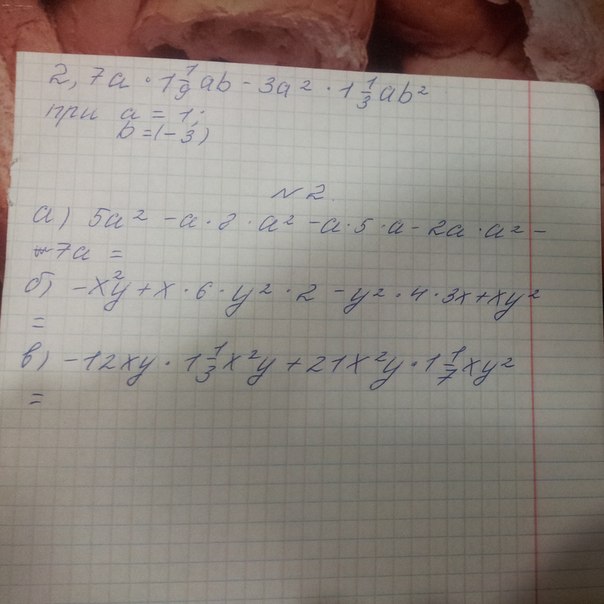 2,7a · 1 1/9 ab - 3a² · 1 1/3 ab²
при a = 1;
b = (-3)
№2.
а) 5a² - a · 8 · a² - a · 5 · a - 2a · a² -
- 7a =
б) -x²y + x · 6 · y² · 2 - y² · 4 · 3x + xy²
=
в) -12xy · 1 1/3 x²y + 21x²y · 1 1/7 xy²
=